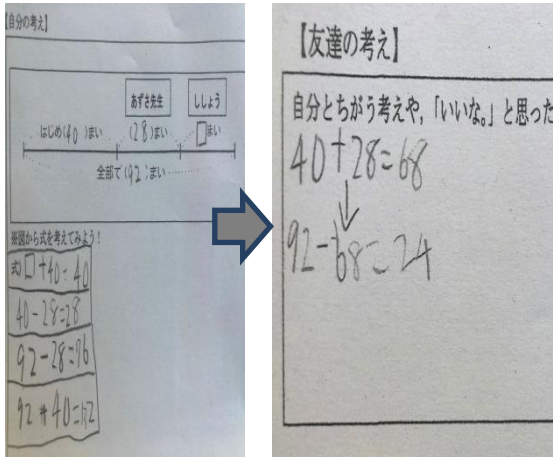 【自分の考え】
あずさ先生 ししょう
はじめ(40)まい (28)まい □まい
全部で(92)まい
※図から式を考えてみよう!
式)□+40=40
40-28=28
92-28=76
【友達の考え】
自分とちがう考えや,「いいな。」と思った
40+28=68
92-68=24